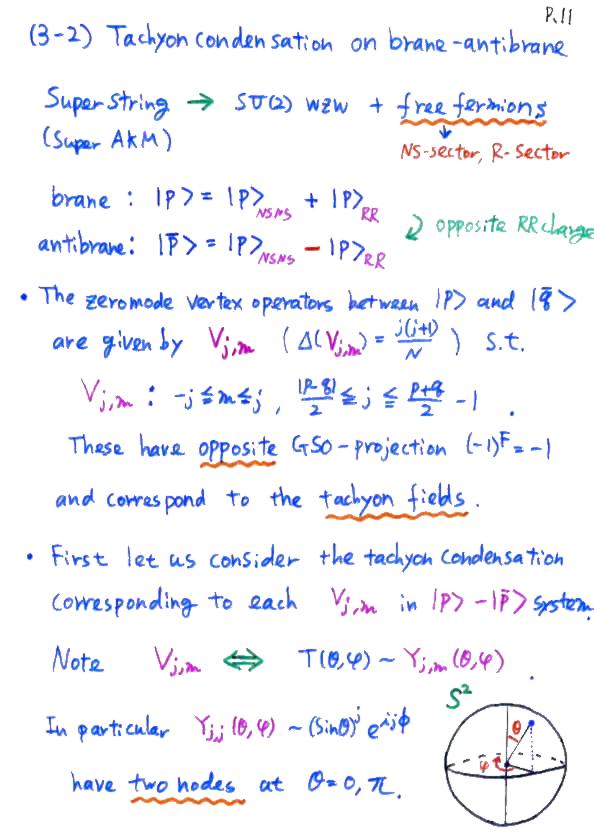 P.11
(3-2) Tachyon condensation on brane-antibrane
Superstring → SU(2) WZW + free fermions
(Super AKM) ↓ NS-sector, R-sector
brane : |p> = |p>_NSNS + |p>_RR
opposite RR charge
antibrane: |p̄> = |p>_NSNS − |p>_RR
• The zeromode vertex operators between |p> and |q̄>
are given by V_j,m ( Δ(V_j,m) = j(j+1)/N ) s.t.
V_j,m : -j ≦ m ≦ j , |p-q|/2 ≦ j ≦ (p+q)/2 - 1 .
These have opposite GSO-projection (-1)^F = -1
and correspond to the tachyon fields.
• First let us consider the tachyon condensation
corresponding to each V_j,m in |p> - |p̄> system.
Note V_j,m ⇔ T(θ,φ) ~ Y_j,m (θ,φ) .
S²
θ
φ
In particular Y_j,j (θ,φ) ~ (sinθ)^j e^{ijφ}
have two nodes at θ=0, π.